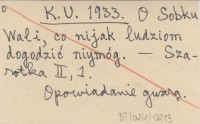 K. U. 1933. O Sobku
Wali, co nijak ludziom
dogodzić niymóg. — Sza-
rotka II, 1.
Opowiadanie gwarą.